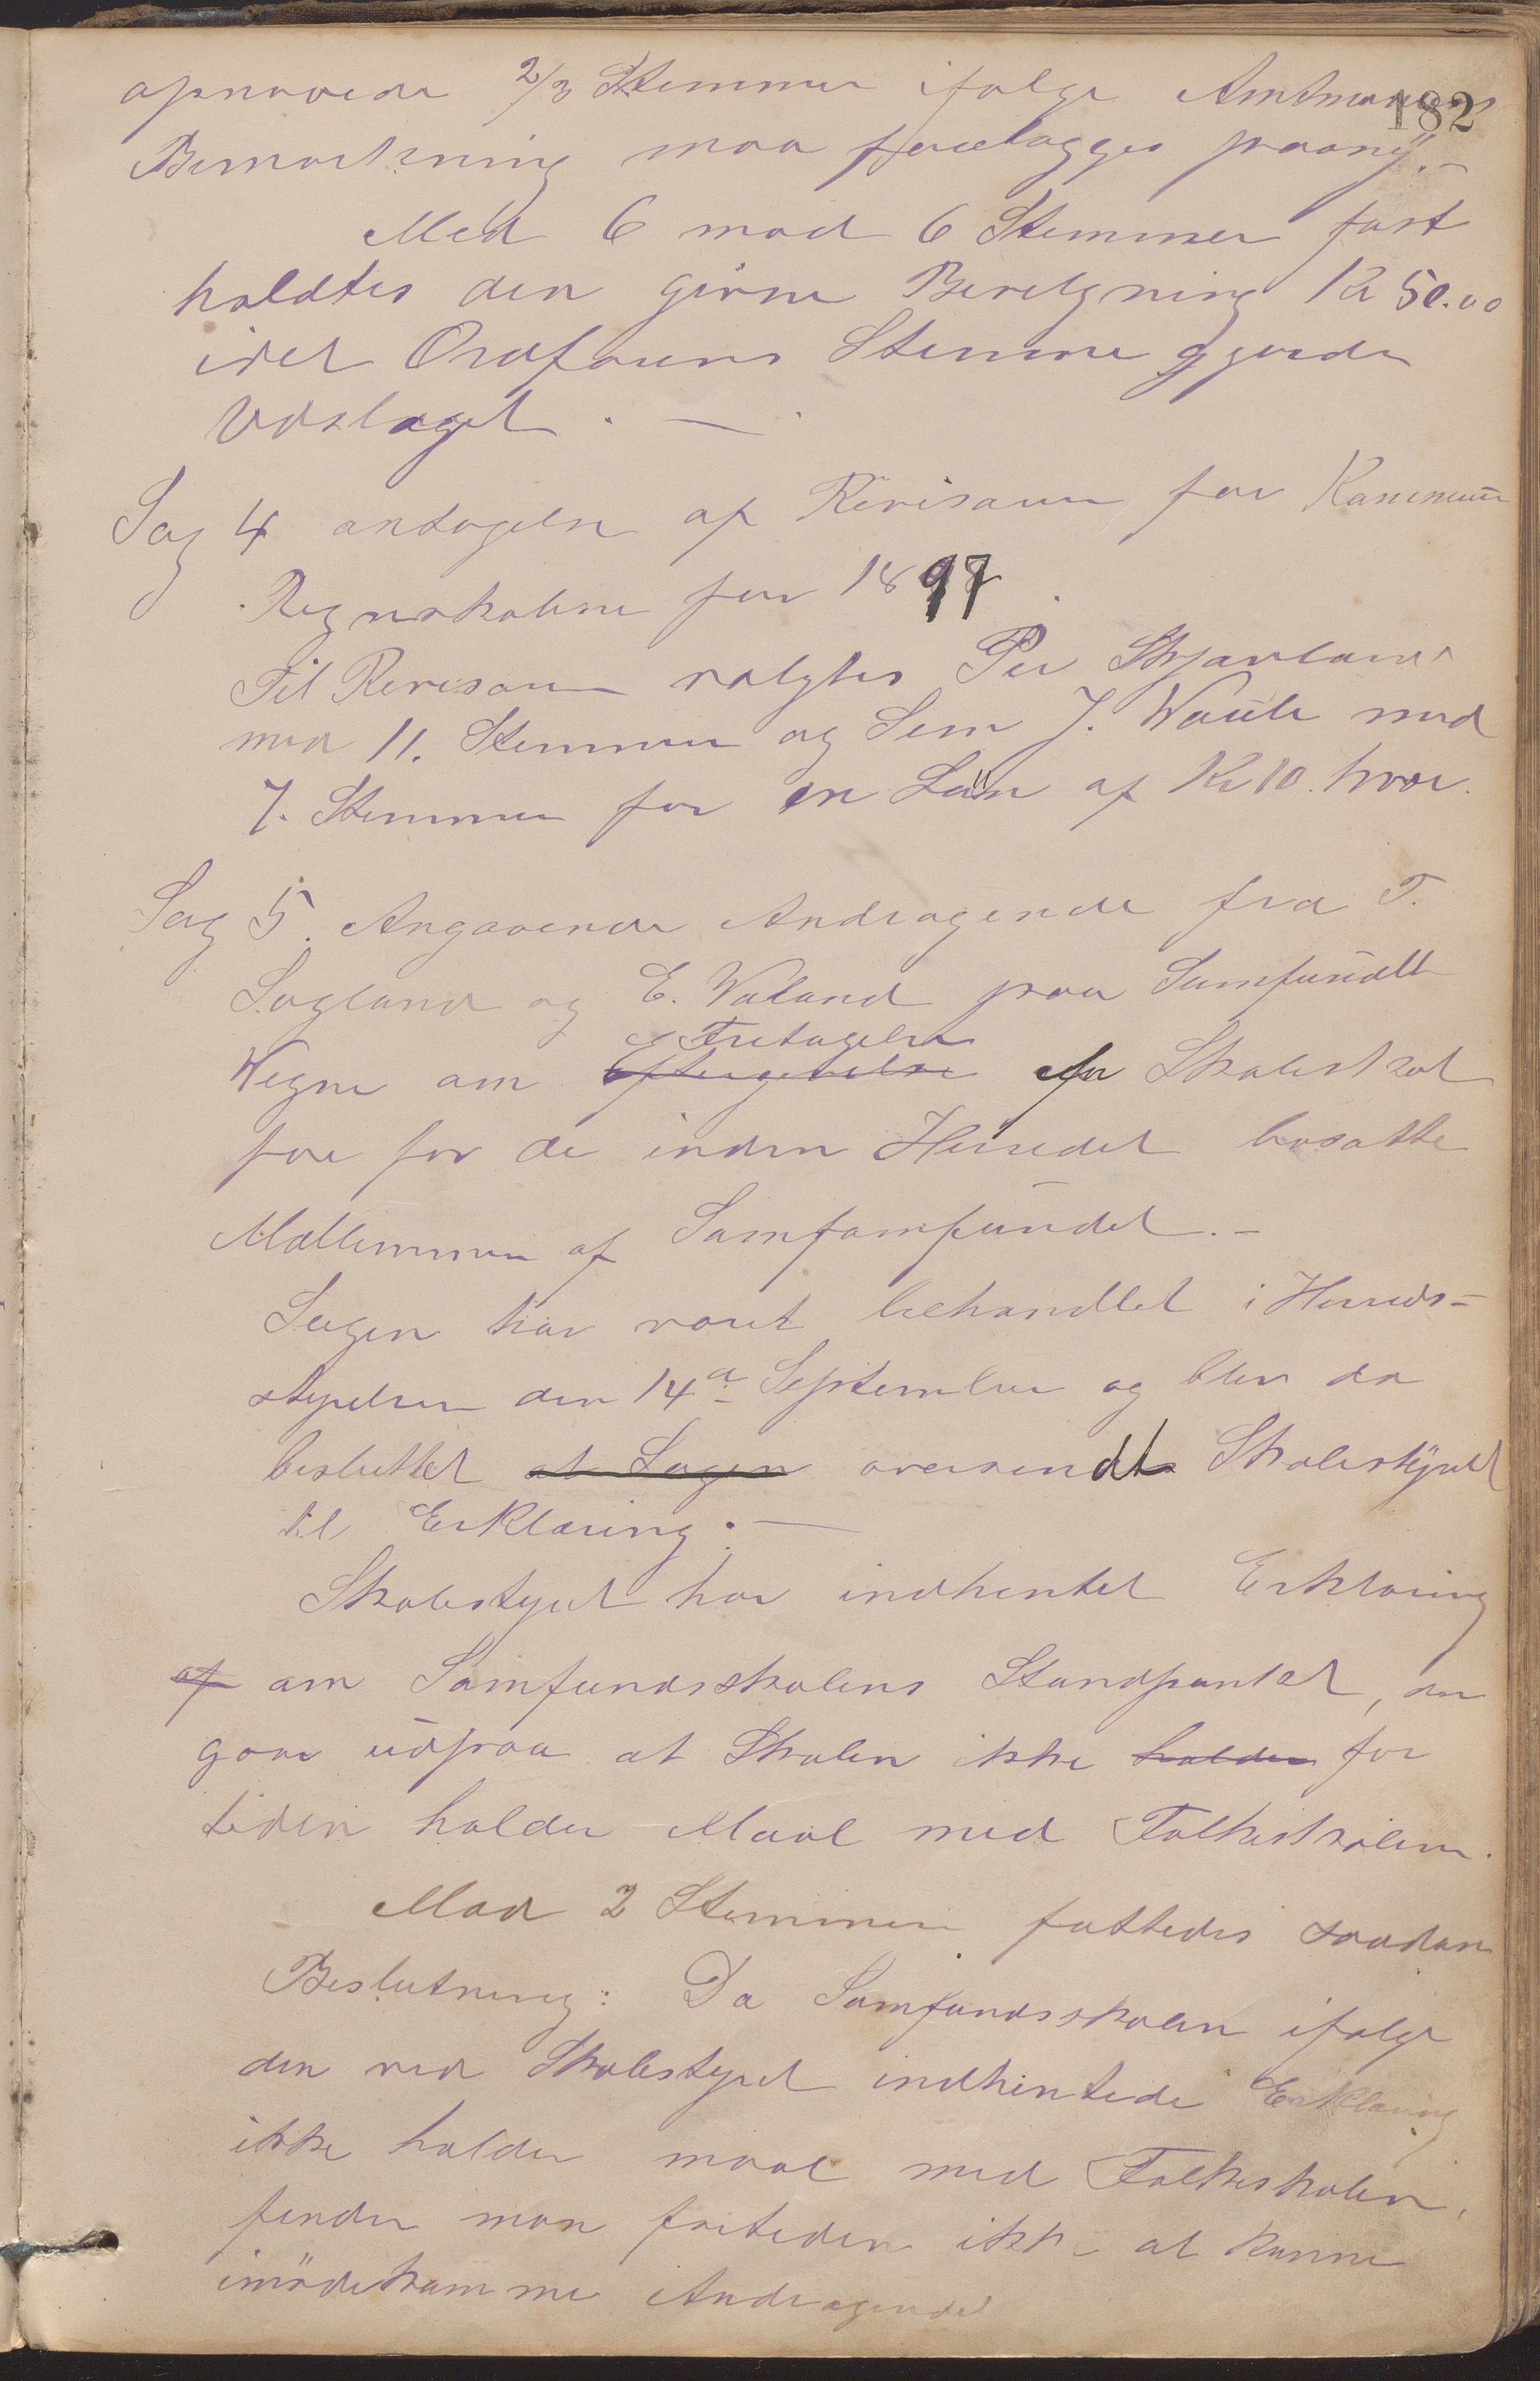 182
opnaaede 2/3 Stemmer ifølge Amtmandens
Bemærkning maa forelægges paany.-
Med 6 mod 6 Stemmer fast
holdtes den givne Bevilgning Kr 50.00
idet Ordførerens Stemme gjorde
Udslaget. —
Sag 4 antagelse af Revisorer for Kommune
Regnskaberne for 1897.
Til Revisorer valgtes Per Skjæveland
med 11. Stemmer og Sem J. Waule med
7. Stemmer for en Løn af Kr 10. hver.
Sag 5. Angaaende Andragende fra T.
Sagland og E. Waland paa Samfundets
Vegne om Eftergivelse Fritagelse for Skoleskat
for for de inden Herredet bosatte
Medlemmer af Samfamfundet.-
Sagen har været behandlet i Herreds-
styrelsen den 14de September og blev da
besluttet at Sagen oversendt Skolestyret
til Erklæring.—
Skolestyret har indhentet Erklæring
af om Samfundsskolens Standpunkt, den
gaar udpaa at Skolen ikke holder for
tiden holder Maal med Folkeskolen.
Mod 2 Stemmer fattedes saadan
Beslutning: Da Samfundsskolen ifølge
den ved Skolestyret indhentede Erklæring
ikke holder maal med Folkeskolen,
finder man fortiden ikke at kunne
imødekomme Andragendet